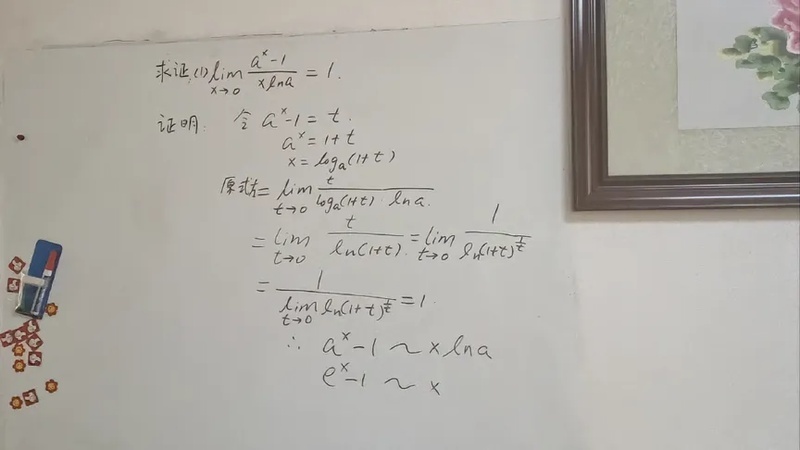 求证(1) lim x→0 a^x-1 / x ln a = 1.
证明: 令 a^x-1 = t.
a^x = 1+t
x = log_a(1+t)
原式 = lim t→0 t / log_a(1+t) · ln a.
= lim t→0 t / ln(1+t) = lim t→0 1 / ln(1+t)^(1/t)
= 1 / lim t→0 ln(1+t)^(1/t) = 1.
∴ a^x-1 ~ x ln a
e^x-1 ~ x